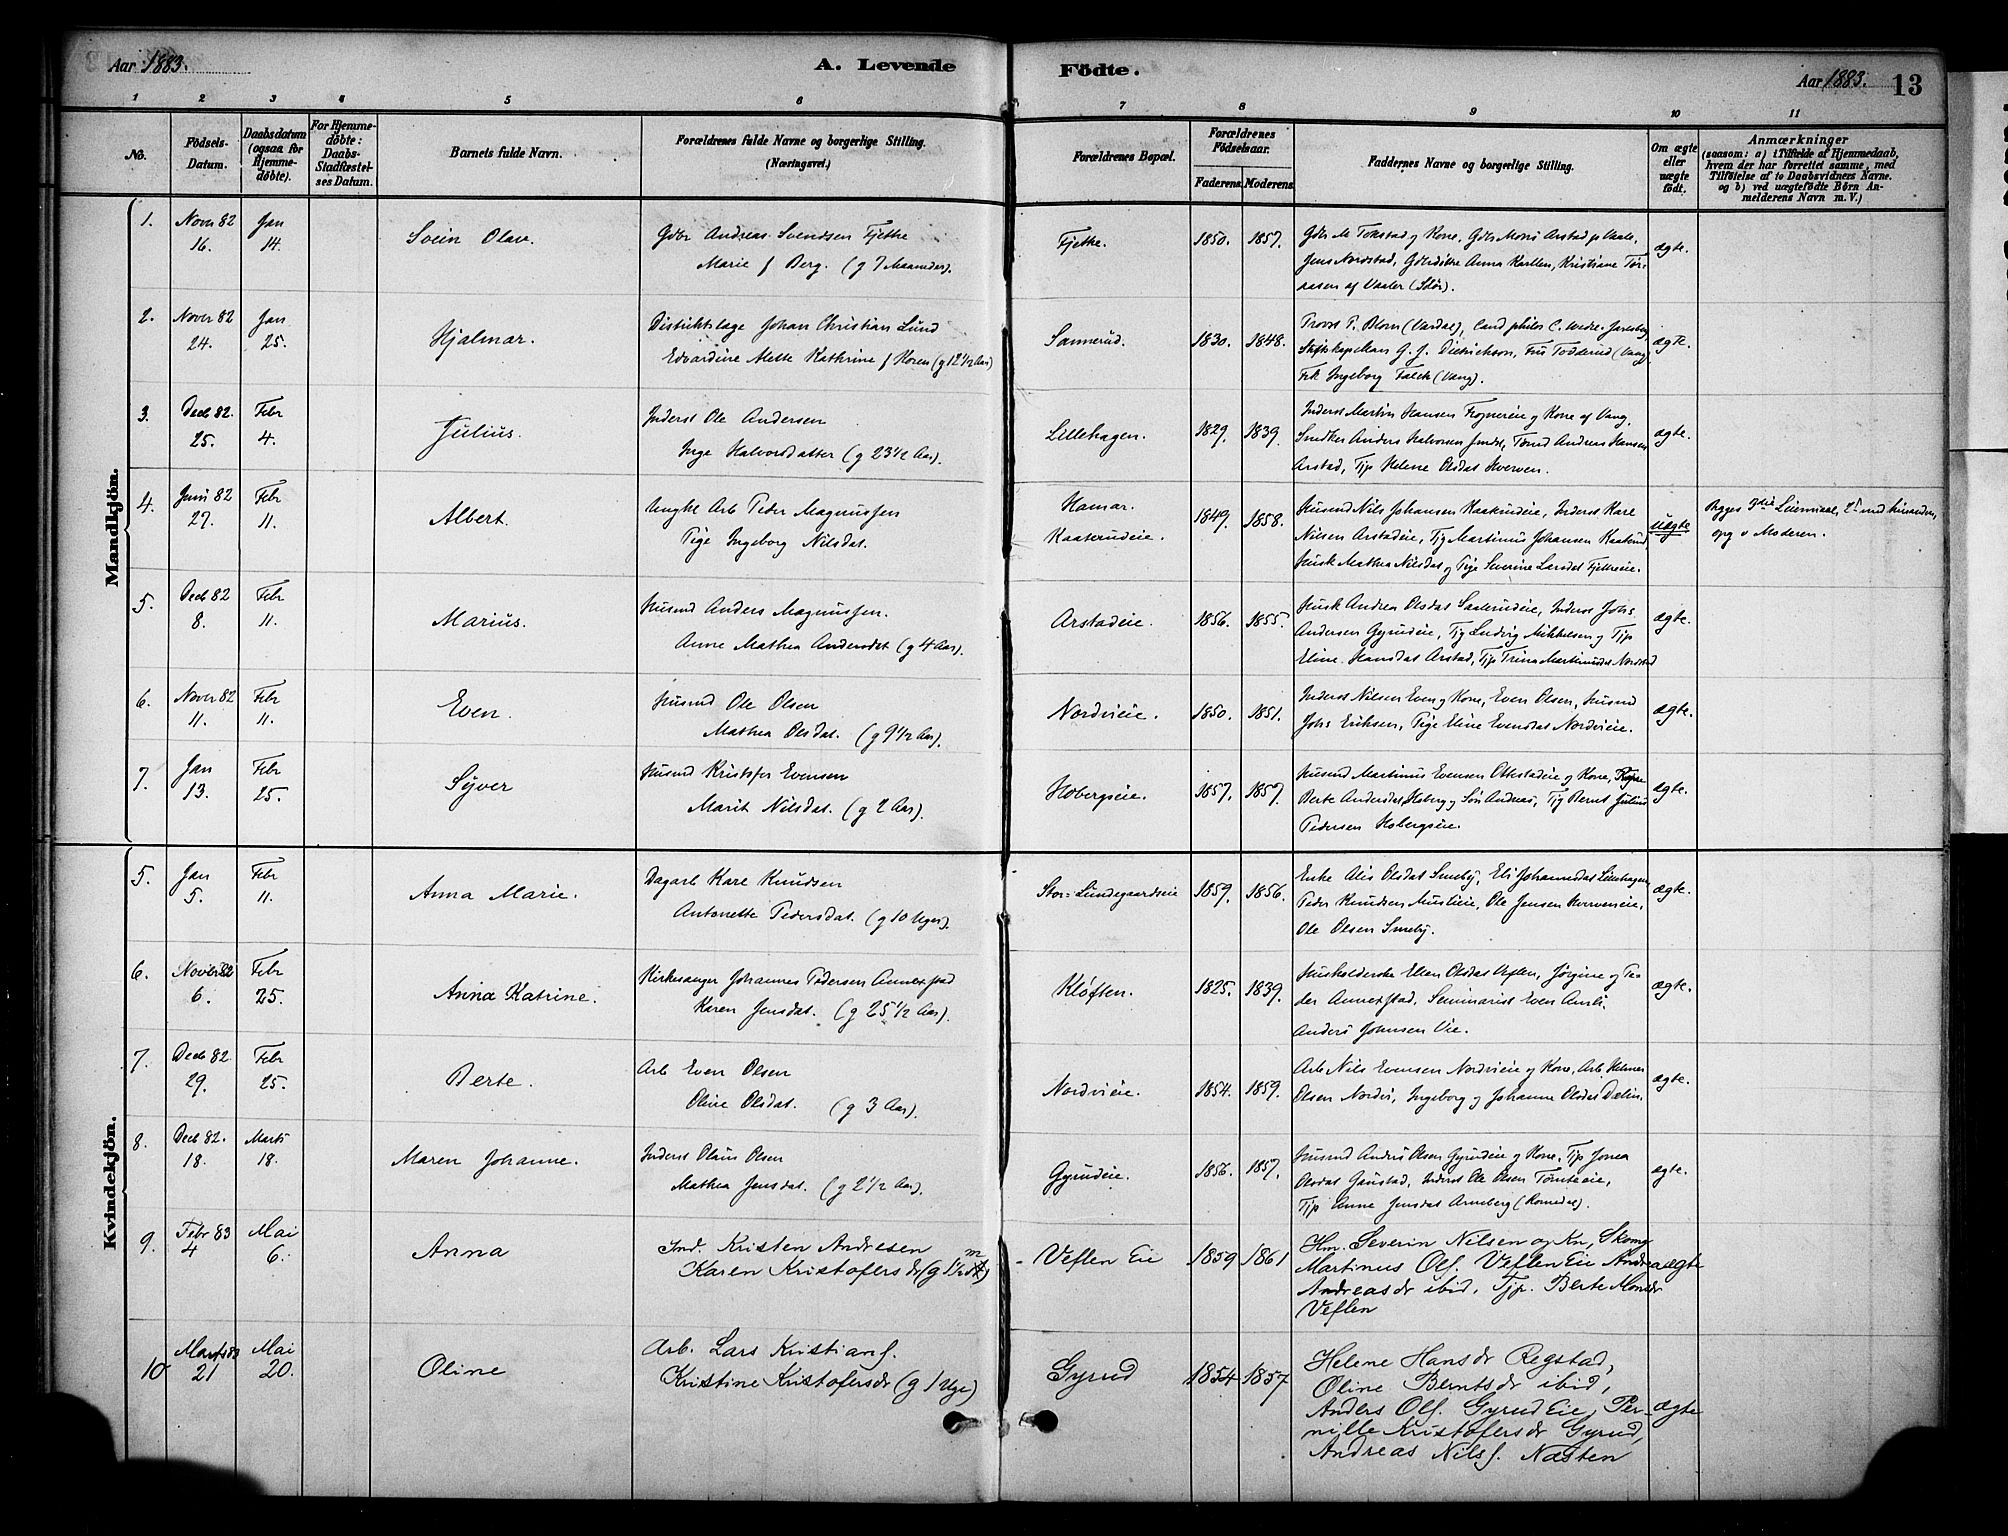 Aar 1883.
A. Levende Födte.
Aar 1883.
13
1 2 3 4 5 6 7 8 9 10 11
No.
Födsels-Datum.
Daabsdatum (ogsaa for Hjemme-döbte).
For Hjemme-döbte: Daabs-Stadfæstel-ses Datum.
Barnets fulde Navn.
Forældrenes fulde Navne og borgerlige Stilling.
(Næringsvei.)
Forældrenes Bopæl.
Forældrenes Födselsaar.
Faderens. Moderens.
Faddernes Navne og borgerlige Stilling.
Om ægte eller uægte födt.
Anmærkninger
(saasom: a) i Tilfælde af Hjemmedaab,
hvem der har forrettet samme, med
Tilföielse af to Daabsvidners Navne.
og b) ved uægtefödte Börn An-
melderens Navn m. V.)
Mandkjön.
1. Novr 82 16. Jan 14. Svein Olav. Gdbr Andreas Svendsen Fjetke
Marie f Berg. (g 7 Maaneder). Fjetke. 1850. 1857. ægte.
Jens Nordstad, Anna Karlsen, Kristiane
af Vaaler (Solør).
2. Novbr 82 24. Jan 25. Hjalmar. Distriktslæge Johan Christian Lund
Edvardine Mette Kathrine f Horen (g 12 1/2 Aar) Sannerud. 1830. 1848. ægte.
Provst P. Blom (Vardal), Cand philos C. Wedel-Jarlsberg,
Stiftskapellan G. J. Dietrichson, Fru Todderud (Vang)
Frk Ingeborg Falck (Vang).
3. Decb 82. 25. Febr 4. Julius. Inderst Ole Andersen
Inge Halvorsdatter (g 23 1/2 Aar). Lillehagen. 1829. 1839. ægte.
Inderst Martin Hansen Frognereie og Kone af Vang,
Snedker Anders Halvorsen Andreas Hansen
Arstad, Tjp Helene Olsdat Kverven.
4. Juni 82 27. Febr 11. Albert. Ungkl Arb Peder Magnussen
Pige Ingeborg Nilsdat. Hamar.
Kaaterudeie. 1849. 1858. uægte
Husmd Nils Johansen Inderst Kare
Nilsen Arstadeie, Tjg Martinus Johansen
Husk Mathea Nilsdat og Pige Severine Larsdat Fjetkeeie.
Begges Leiermaal,
opg v Moderen.
5. Decb 82 8. Febr 11. Marius. Husmd Anders Magnussen.
Anne Mathea Andersdat (g 4 Aar). Arstadeie. 1856. 1855. ægte.
Husk Andrea Olsdat Inderst Johs
Andersen Gyrudeie, Tjg Ludvig Mikkelsen og Tjp
Eline Hansdat Arstad, Tjp Trina Martinusdat Nordstad
6. Novbr 82 11. Febr 11. Even. Husmd Ole Olsen
Mathea Olsdat. (g 9 1/2 Aar). Nordvieie. 1850. 1851. ægte.
Inderst Nilsen Even og Kone, Even Olsen, Husmd
Johs Eriksen, Pige Eline Evensdat Nordvieie.
7. Jan 13. Febr 25. Syver Husmd Kristofer Evensen
Marit Nilsdat. (g 2 Aar). Hobergseie. 1857. 1857. ægte.
Husmd Martinus Evensen Ottestadeie og Kone,
Berte Andersdat Hoberg og Søn Andreas, Tjg Bernt Julius
Pedersen Hobergseie.
Kvindekjön.
5. Jan 5. Febr 11. Anna Marie. Dagarb Kare Knudsen
Antonette Pedersdat. (g 10 Uger). Stor-Lundegaardseie 1859. 1856. ægte.
Enke Olsdat Smeby, Eli Johannesdat Lillehagen
Peder Knudsen Muslieie, Ole Jensen Kverveneie,
Ole Olsen Smeby.
6. Novbr 82 6. Febr 25. Anna Katrine. Kirkesanger Johannes Pedersen Annexstad
Karen Jensdat. (g 25 1/2 Aar). Kløften. 1825. 1839. ægte.
Husholderske Ellen Olsdat Veflen, Jørgine og Pe-
der Annexstad, Seminarist Even Amli,
Anders Johnsen Vie.
7. Decb 82. 29. Febr 25. Berte. Arb Even Olsen
Oline Olsdat. (g 3 Aar). Nordvieie. 1854. 1859. ægte.
Arb Nils Evensen Nordvieie og Kone, Arb Helmer
Olsen Nordvi, Ingeborg og Johanne Olsdat Dælin.
8. Decb 82. 18. Marts 18. Maren Johanne. Inderst Olaus Olsen
Mathea Jensdat. (g 2 1/2 Aar). Gyrudeie. 1856. 1857. ægte.
Husmd Anders Olsen Gyrudeie og Kone, Tjp Jonea
Olsdat Gaustad, Inderst Ole Olsen Tomteeie,
Tjp Anne Jensdat Arneberg (Romedal).
9. Febr 83 4 Mai 6. Anna Ind. Kristen Andresen
Karen Kristofersdr (g 1 1/2 m) Veflen Eie 1859 1861 ægte
Hm. Severin Nilsen og Kn, Skomg
Martinus Ols. Veflen Eie Andrea
Andreasdr ibid, Tjp. Berte Monsdr
Veflen
10 Marts 83 21 Mai 20. Oline Arb. Lars Kristians.
Kristine Kristofersdr (g 1 Uge) Gyrud 1854 1857 ægte
Helene Hansdr Regstad,
Oline Berntsdr ibid,
Anders Ols. Gyrud Eie, Per-
nille Kristofersdr Gyrud,
Andreas Nils. Næsten